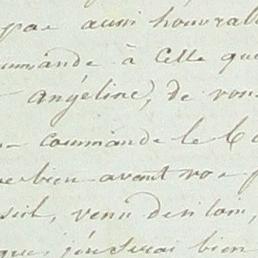 pas aussi honorabl
ommande à celle que
angéline), de vou
commande le C
bien avant vos
soit, venu de si loin,
que j'en serai bien